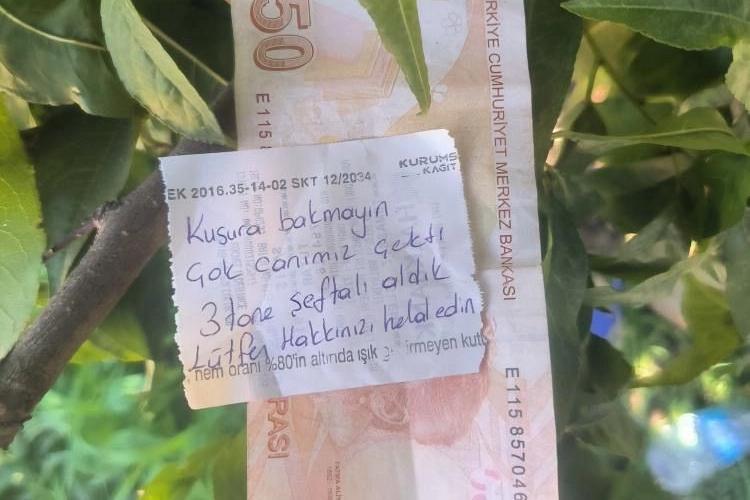 50
E 115 8
RKİYE CUMHURİYET MERKEZ BANKASI
KURUMS
KAĞIT
EK 2016.35-14-02 SKT 12/2034
Kusura bakmayın
Çok canımız çekti
3 tane şeftali aldık
Lütfen Hakkınızı helal edin
nem oranı %80'in altında ışık irmeyen kut
E 115 857046
RASI